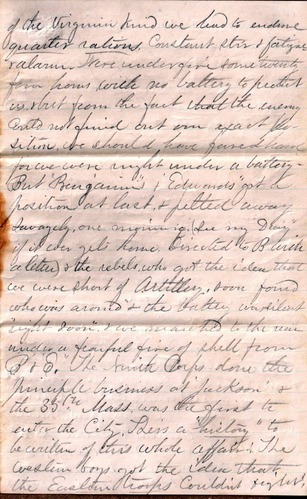 of the Virginia kind we had to endure
quarter rations. Constant stir & fatigue
& alarm. Were under fire some twenty
four hours with no battery to protect
us & but from the fact that the enemy
could not find out our exact po-
sition, we should have fared hard
for we were right under a battery
But "Benjamin's" & "Edwards" got a
position at last, & pelted away
savagely, one morning, (see my Diary
if it ever gets home. Directed to B with
a letter) & the rebels, who got the idea that
we were short of Artillery, soon found
who was around & the battery was silent
right soon. & we marched to the rear
under a fearful fire of shell from
The Ninth Corps, done the
principle business at "Jackson" &
the 35th Mass. was the first to
enter the City. There's a "history" to
be written of this whole affair! The
western boys got the idea that
the Eastern troops couldn't fight